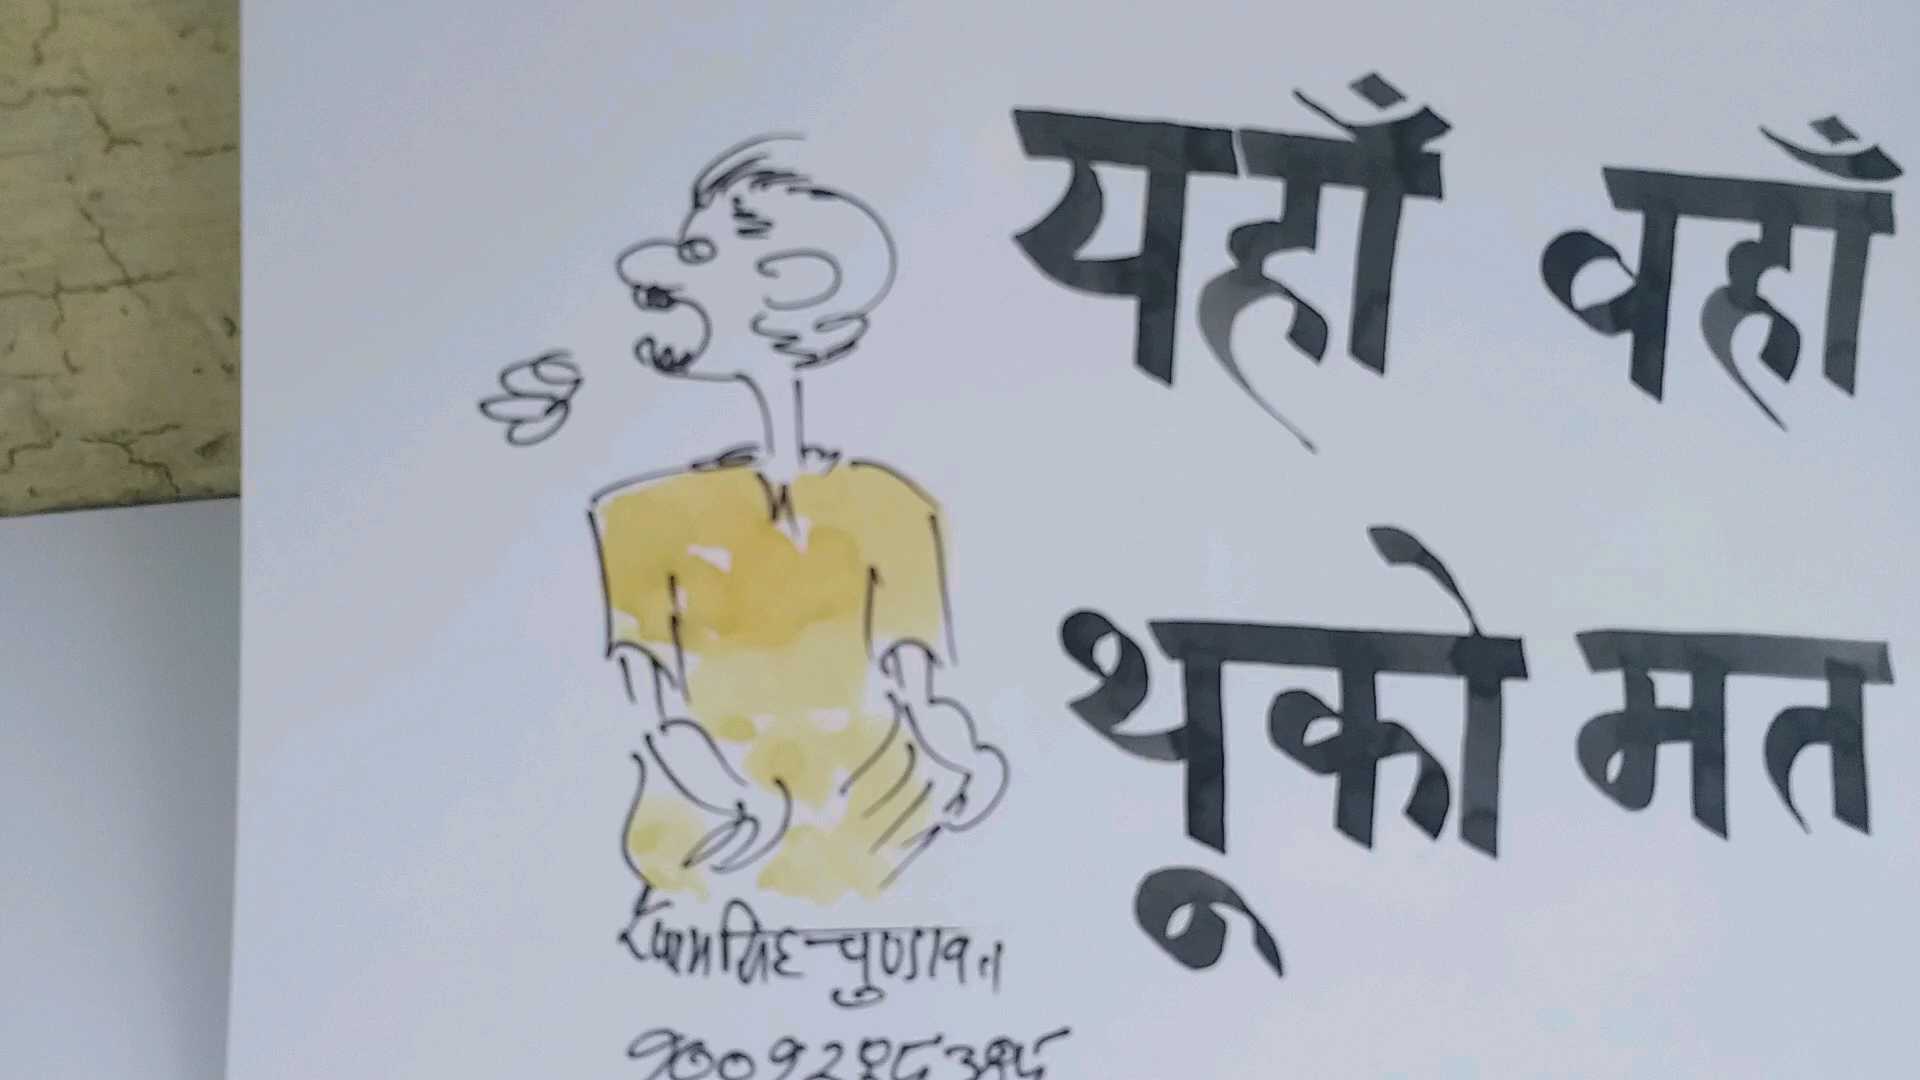 यहाँ वहाँ
थूको मत
श्यामसिंह चुण्डावत